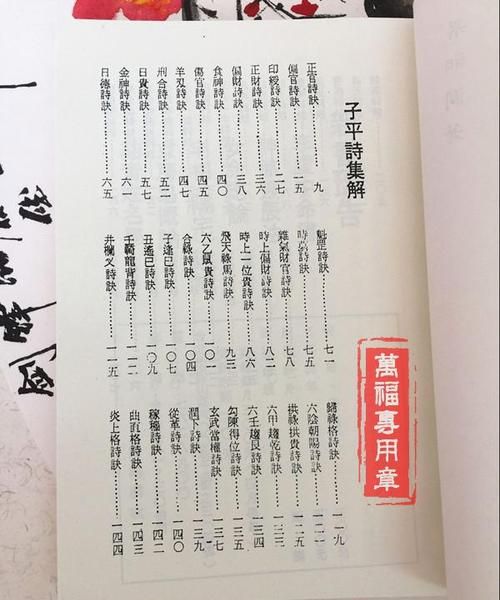 子平詩集解
正官詩訣⋯⋯⋯九
偏官詩訣⋯⋯⋯一五
印綬詩訣⋯⋯⋯二七
正財詩訣⋯⋯⋯三六
偏財詩訣⋯⋯⋯三八
食神詩訣⋯⋯⋯四〇
傷官詩訣⋯⋯⋯四五
羊刃詩訣⋯⋯⋯四七
刑合詩訣⋯⋯⋯五二
日貴詩訣⋯⋯⋯五七
金神詩訣⋯⋯⋯六一
日德詩訣⋯⋯⋯六五
魁罡詩訣⋯⋯⋯七一
時墓詩訣⋯⋯⋯七五
雜氣財官詩訣⋯⋯⋯七八
時上偏財詩訣⋯⋯⋯八二
時上一位貴詩訣⋯⋯⋯八六
飛天祿馬詩訣⋯⋯⋯九三
六乙鼠貴詩訣⋯⋯⋯一〇一
合祿詩訣⋯⋯⋯一〇四
子遙巳詩訣⋯⋯⋯一〇七
丑遙巳詩訣⋯⋯⋯一〇九
壬騎龍背詩訣⋯⋯⋯一一二
井欄叉詩訣⋯⋯⋯一一五
歸祿格詩訣⋯⋯⋯一一九
六陰朝陽詩訣⋯⋯⋯一二二
拱祿拱貴詩訣⋯⋯⋯一二五
六甲趨乾詩訣⋯⋯⋯一三三
六壬趨艮詩訣⋯⋯⋯一三四
勾陳得位詩訣⋯⋯⋯一三五
玄武當權詩訣⋯⋯⋯一三七
潤下詩訣⋯⋯⋯一三九
從革詩訣⋯⋯⋯一四〇
稼穡詩訣⋯⋯⋯一四二
曲直格詩訣⋯⋯⋯一四三
炎上格詩訣⋯⋯⋯一四四
萬福專用章